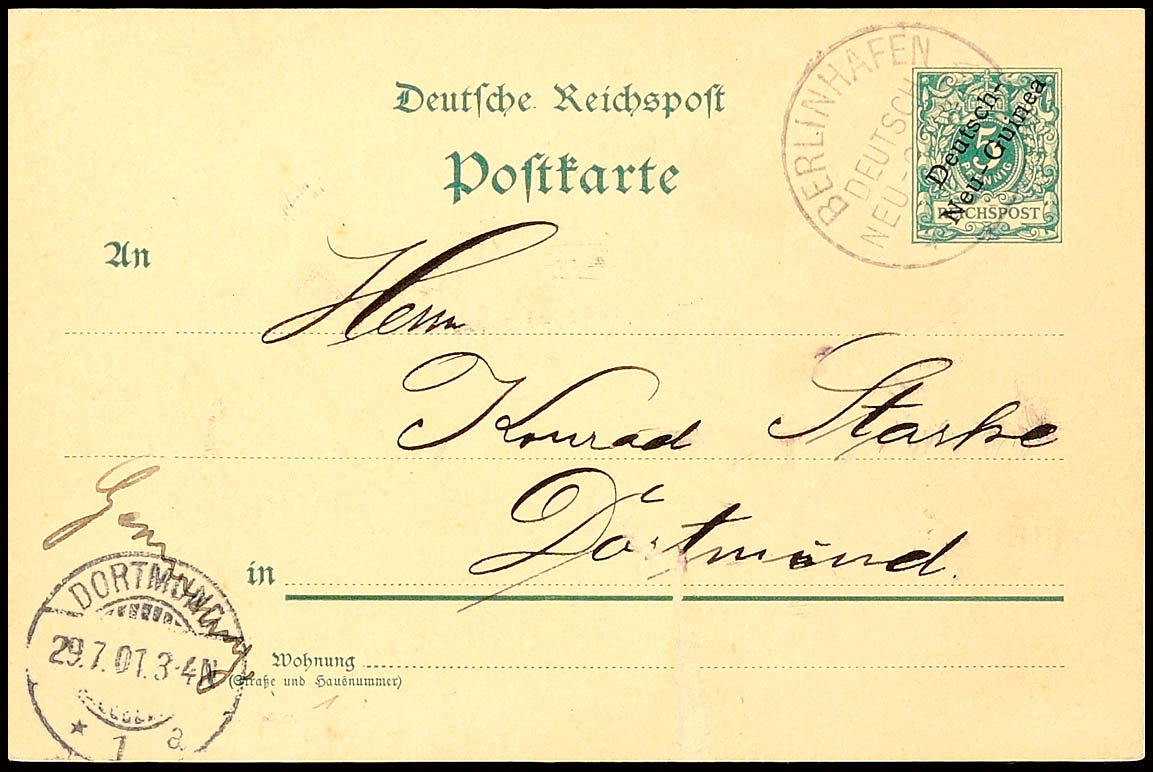 Deutsche Reichspost
Postkarte
BERLINHAFEN
DEUTSCH
NEU-G
5
PFENNIG
REICHSPOST
Deutsch-
Neu-Guinea
An
Herrn
Konrad Starke
in Dortmund.
Germany
DORTMUND
29.7.01.3-4N
* 1 a
Wohnung
(Straße und Hausnummer)